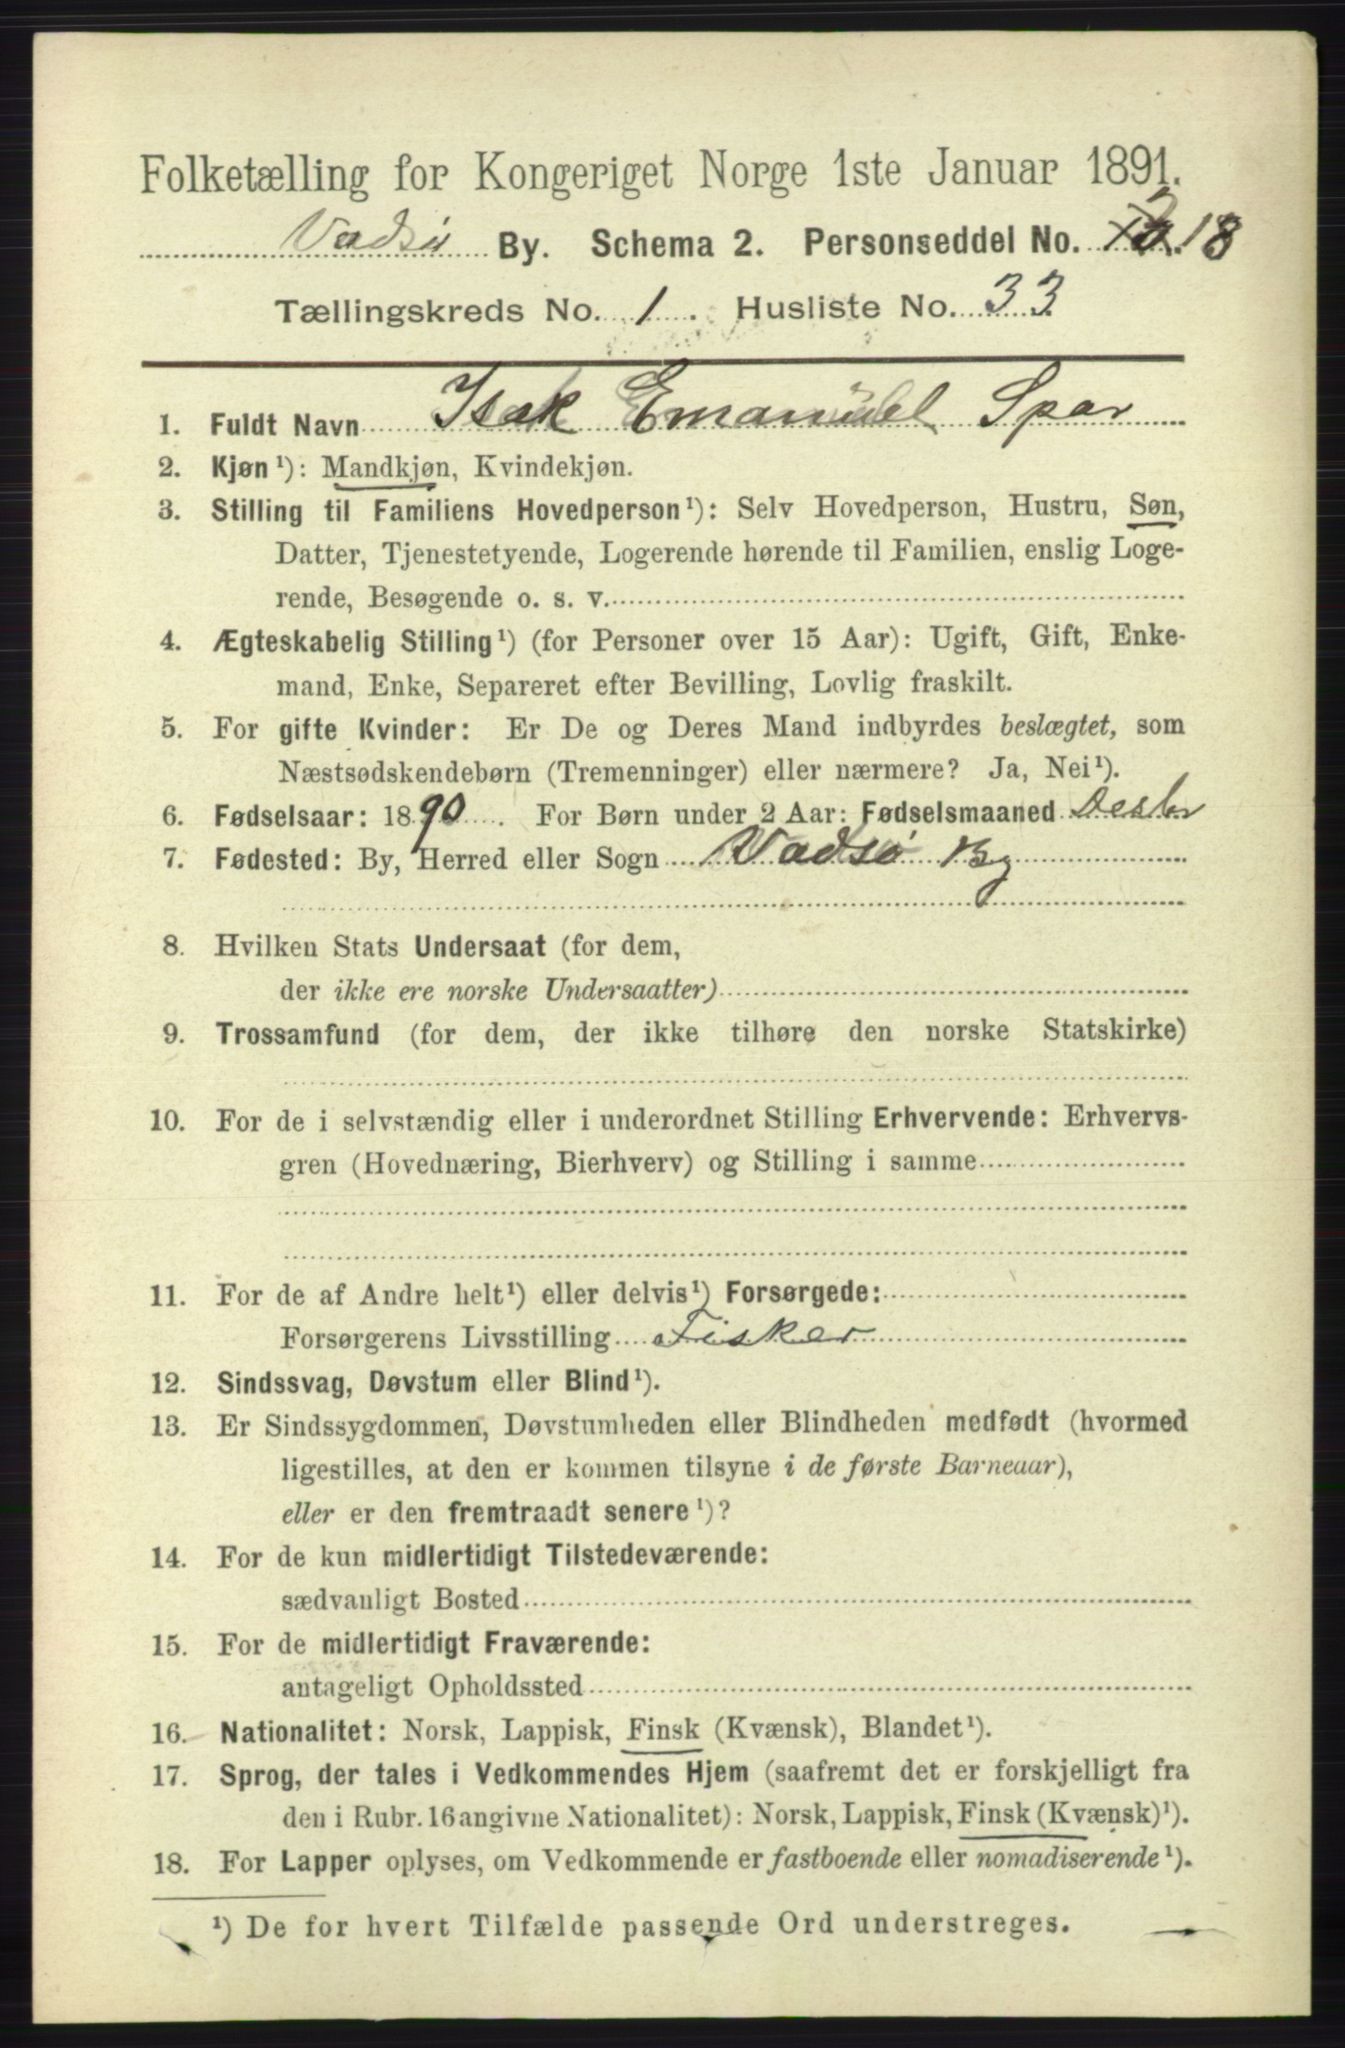 Folketælling for Kongeriget Norge 1ste Januar 1891.
Vadsø By. Schema 2. Personseddel No. 18
Tællingskreds No. 1. Husliste No. 33
1. Fuldt Navn Isak Emanuel Spar
2. Kjøn¹): Mandkjøn, Kvindekjøn.
3. Stilling til Familiens Hovedperson¹): Selv Hovedperson, Hustru, Søn,
Datter, Tjenestetyende, Logerende hørende til Familien, enslig Loge-
rende, Besøgende o. s. v.
4. Ægteskabelig Stilling¹) (for Personer over 15 Aar): Ugift, Gift, Enke-
mand, Enke, Separeret efter Bevilling, Lovlig fraskilt.
5. For gifte Kvinder: Er De og Deres Mand indbyrdes beslægtet, som
Næstsødskendebørn (Tremenninger) eller nærmere? Ja, Nei¹).
6. Fødselsaar: 1890. For Børn under 2 Aar: Fødselsmaaned Desbr
7. Fødested: By, Herred eller Sogn Vadsø By
8. Hvilken Stats Undersaat (for dem,
der ikke ere norske Undersaatter)
9. Trossamfund (for dem, der ikke tilhøre den norske Statskirke)
10. For de i selvstændig eller i underordnet Stilling Erhvervende: Erhvervs-
gren (Hovednæring, Bierhverv) og Stilling i samme
11. For de af Andre helt¹) eller delvis¹) Forsørgede:
Forsørgerens Livsstilling Fisker
12. Sindssvag, Døvstum eller Blind¹).
13. Er Sindssygdommen, Døvstumheden eller Blindheden medfødt (hvormed
ligestilles, at den er kommen tilsyne i de første Barneaar),
eller er den fremtraadt senere¹)?
14. For de kun midlertidigt Tilstedeværende:
sædvanligt Bosted
15. For de midlertidigt Fraværende:
antageligt Opholdssted
16. Nationalitet: Norsk, Lappisk, Finsk (Kvænsk), Blandet¹).
17. Sprog, der tales i Vedkommendes Hjem (saafremt det er forskjelligt fra
den i Rubr. 16 angivne Nationalitet): Norsk, Lappisk, Finsk (Kvænsk)¹).
18. For Lapper oplyses, om Vedkommende er fastboende eller nomadiserende¹).
¹) De for hvert Tilfælde passende Ord understreges.